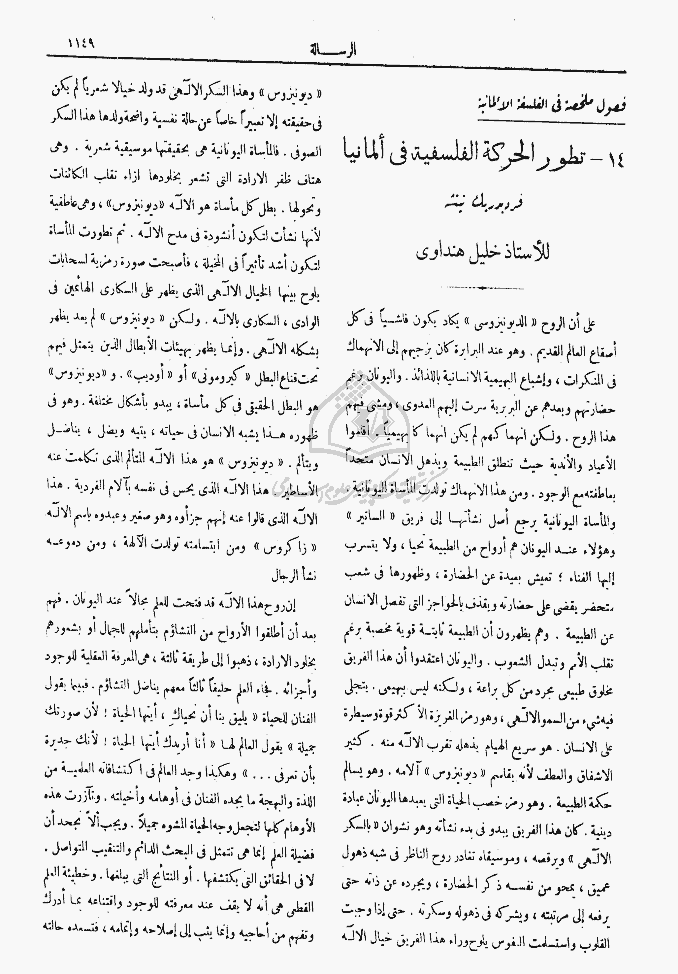 الرسالة
١١٤٩
فصول ملخصة في الفلسفة الألمانية
١٤ - تطور الحركة الفلسفية في ألمانيا
فردريك نيتشه
للأستاذ خليل هنداوى
على أن الروح « الديونيزوسى » يكاد يكون فاشياً فى كل
أصقاع العالم القديم . وهو عند البرابرة كان يزجيهم إلى الانهماك
فى المنكرات ، وإشباع البهيمية الانسانية باللذائذ . واليونان رغم
حضارتهم وبعدهم عن البربرية سرت إليهم العدوى ، ومشى فيهم
هذا الروح . ولكن انهماكهم لم يكن انهماكا بهيمياً . أقاموا
الأعياد والأندية حيث تنطلق الطبيعة ويذهل الانسان متحداً
بعاطفته مع الوجود . ومن هذا الانهماك تولدت المأساة اليونانية .
والمأساة اليونانية يرجع أصل نشأتها إلى فريق « الساتير »
وهؤلاء عند اليونان هم أرواح من الطبيعة تحيا ، ولا يتسرب
إليها الفناء ؛ تعيش بعيدة عن الحضارة ، وظهورها فى شعب
متحضر يقضى على حضارته ويقذف بالحواجز التى تفصل الانسان
عن الطبيعة . وهم يظهرون أن الطبيعة ثابتة قوية مخصبة برغم
تقلب الأمم وتبدل الشعوب . واليونان اعتقدوا أن هذا الفريق
مخلوق طبيعى مجرد من كل براعة ، ولكنه ليس بهيمى . يتجلى
فيه شىء من السمو الالهى ، وهو رمز الغريزة الأكثر قوة وسيطرة
على الانسان . هو سريع الهيام يذهله تقرب الاله منه . كثير
الاشفاق والعطف لأنه يقاسم « ديونيزوس » آلامه . وهو يسالم
حكمة الطبيعة . وهو رمز خصب الحياة التى يعبدها اليونان عبادة
دينية . كان هذا الفريق يبدو فى بدء نشأته وهو نشوان « بالسكر
الالهى » وبرقصه ، وموسيقاه تغادر روح الناظر فى شبه ذهول
عميق ، يمحو من نفسه ذكر الحضارة ، ويجرده عن ذاته حتى
يرفعه إلى مرتبته ، ويشركه فى ذهوله وسكرته . حتى إذا وجبت
القلوب واستسلمت النفوس يلوح وراء هذا الفريق خيال الاله
« ديونيزوس » وهذا السكر الالهى قد ولد خيالا شعرياً لم يكن
فى حقيقته إلا تعبيراً خاصاً عن حالة نفسية واضحة ولدها هذا السكر
الصوفى . فالمأساة اليونانية هى بحقيقتها موسيقية شعرية . وهى
هتاف ظفر الارادة التى تشعر بخلودها ازاء تقلب الكائنات
وتحولها . بطل كل مأساة هو الاله « ديونيزوس » ، وهى عاطفية
لأنها نشأت لتكون أنشودة فى مدح الاله . ثم تطورت المأساة
لتكون أشد تأثيراً فى المخيلة ، فأصبحت صورة رمزية لسحابات
يلوح بينها الخيال الالهى الذى يظهر على السكارى الهائمين فى
الوادى ، السكارى بالاله . ولكن « ديونيزوس » لم يعد يظهر
بشكله الالهى . وإنما يظهر بهيئات الأبطال الذين يتمثل فيهم
تحت قناع البطل « كبرومونى » أو « أوديب » . و « ديونيزوس »
هو البطل الحقيقى فى كل مأساة ، يبدو بأشكال مختلفة . وهو فى
ظهوره هذا يشبه الانسان فى حياته ، يتيه ويضل ، يناضل
ويتألم . « ديونيزوس » هو هذا الاله المتألم الذى تكلمت عنه
الأساطير . هذا الاله الذى يحس فى نفسه بآلام الفردية . هذا
الاله الذى قالوا عنه إنهم جزأوه وهو صغير وعبدوه باسم الاله
« زاكروس » ومن ابتسامته تولدت الآلهة ، ومن دموعه
نشأ الرجال
إن روح هذا الاله قد فتحت للعلم مجالاً عند اليونان . فهم
بعد أن أطلقوا الأرواح من التشاؤم بتأملهم للجمال أو بشعورهم
بخلود الارادة ، ذهبوا إلى طريقة ثالثة ، هى المعرفة العقلية للوجود
وأجزائه . فجاء العلم حليفاً ثالثاً معهم يناضل التشاؤم . فبينا يقول
الفنان للحياة « يليق بنا أن نحياك ، أيتها الحياة ! لأن صورتك
جميلة » يقول العالم لها « أنا أريدك أيتها الحياة ! لأنك جديرة
بأن تعرفى . . . » وهكذا وجد العالم فى اكتشافاته العلمية من
اللذة والبهجة ما يجده الفنان فى أوهامه وأخيلته . وتآزرت هذه
الأوهام كلها لتجعل وجه الحياة المشوه جميلاً . ويجب ألا نجحد أن
فضيلة العلم إنما هى تتمثل فى البحث الدائم والتنقيب المتواصل .
لا فى الحقائق التى يكتشفها . أو النتائج التى يبلغها . وخطيئة العلم
القطمى هى أنه لا يقف عند معرفته للوجود واقتناعه بما أدرك
وتفهم من أحاجيه وإنما يثب إلى إصلاحه وإتمامه ، فتسعده حالته